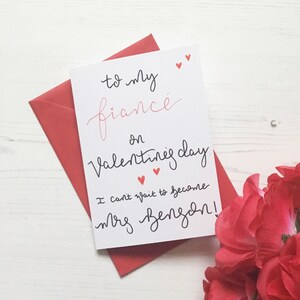 to my
fiancé
on
Valentine's day
I can't wait to become
Mrs Benson!